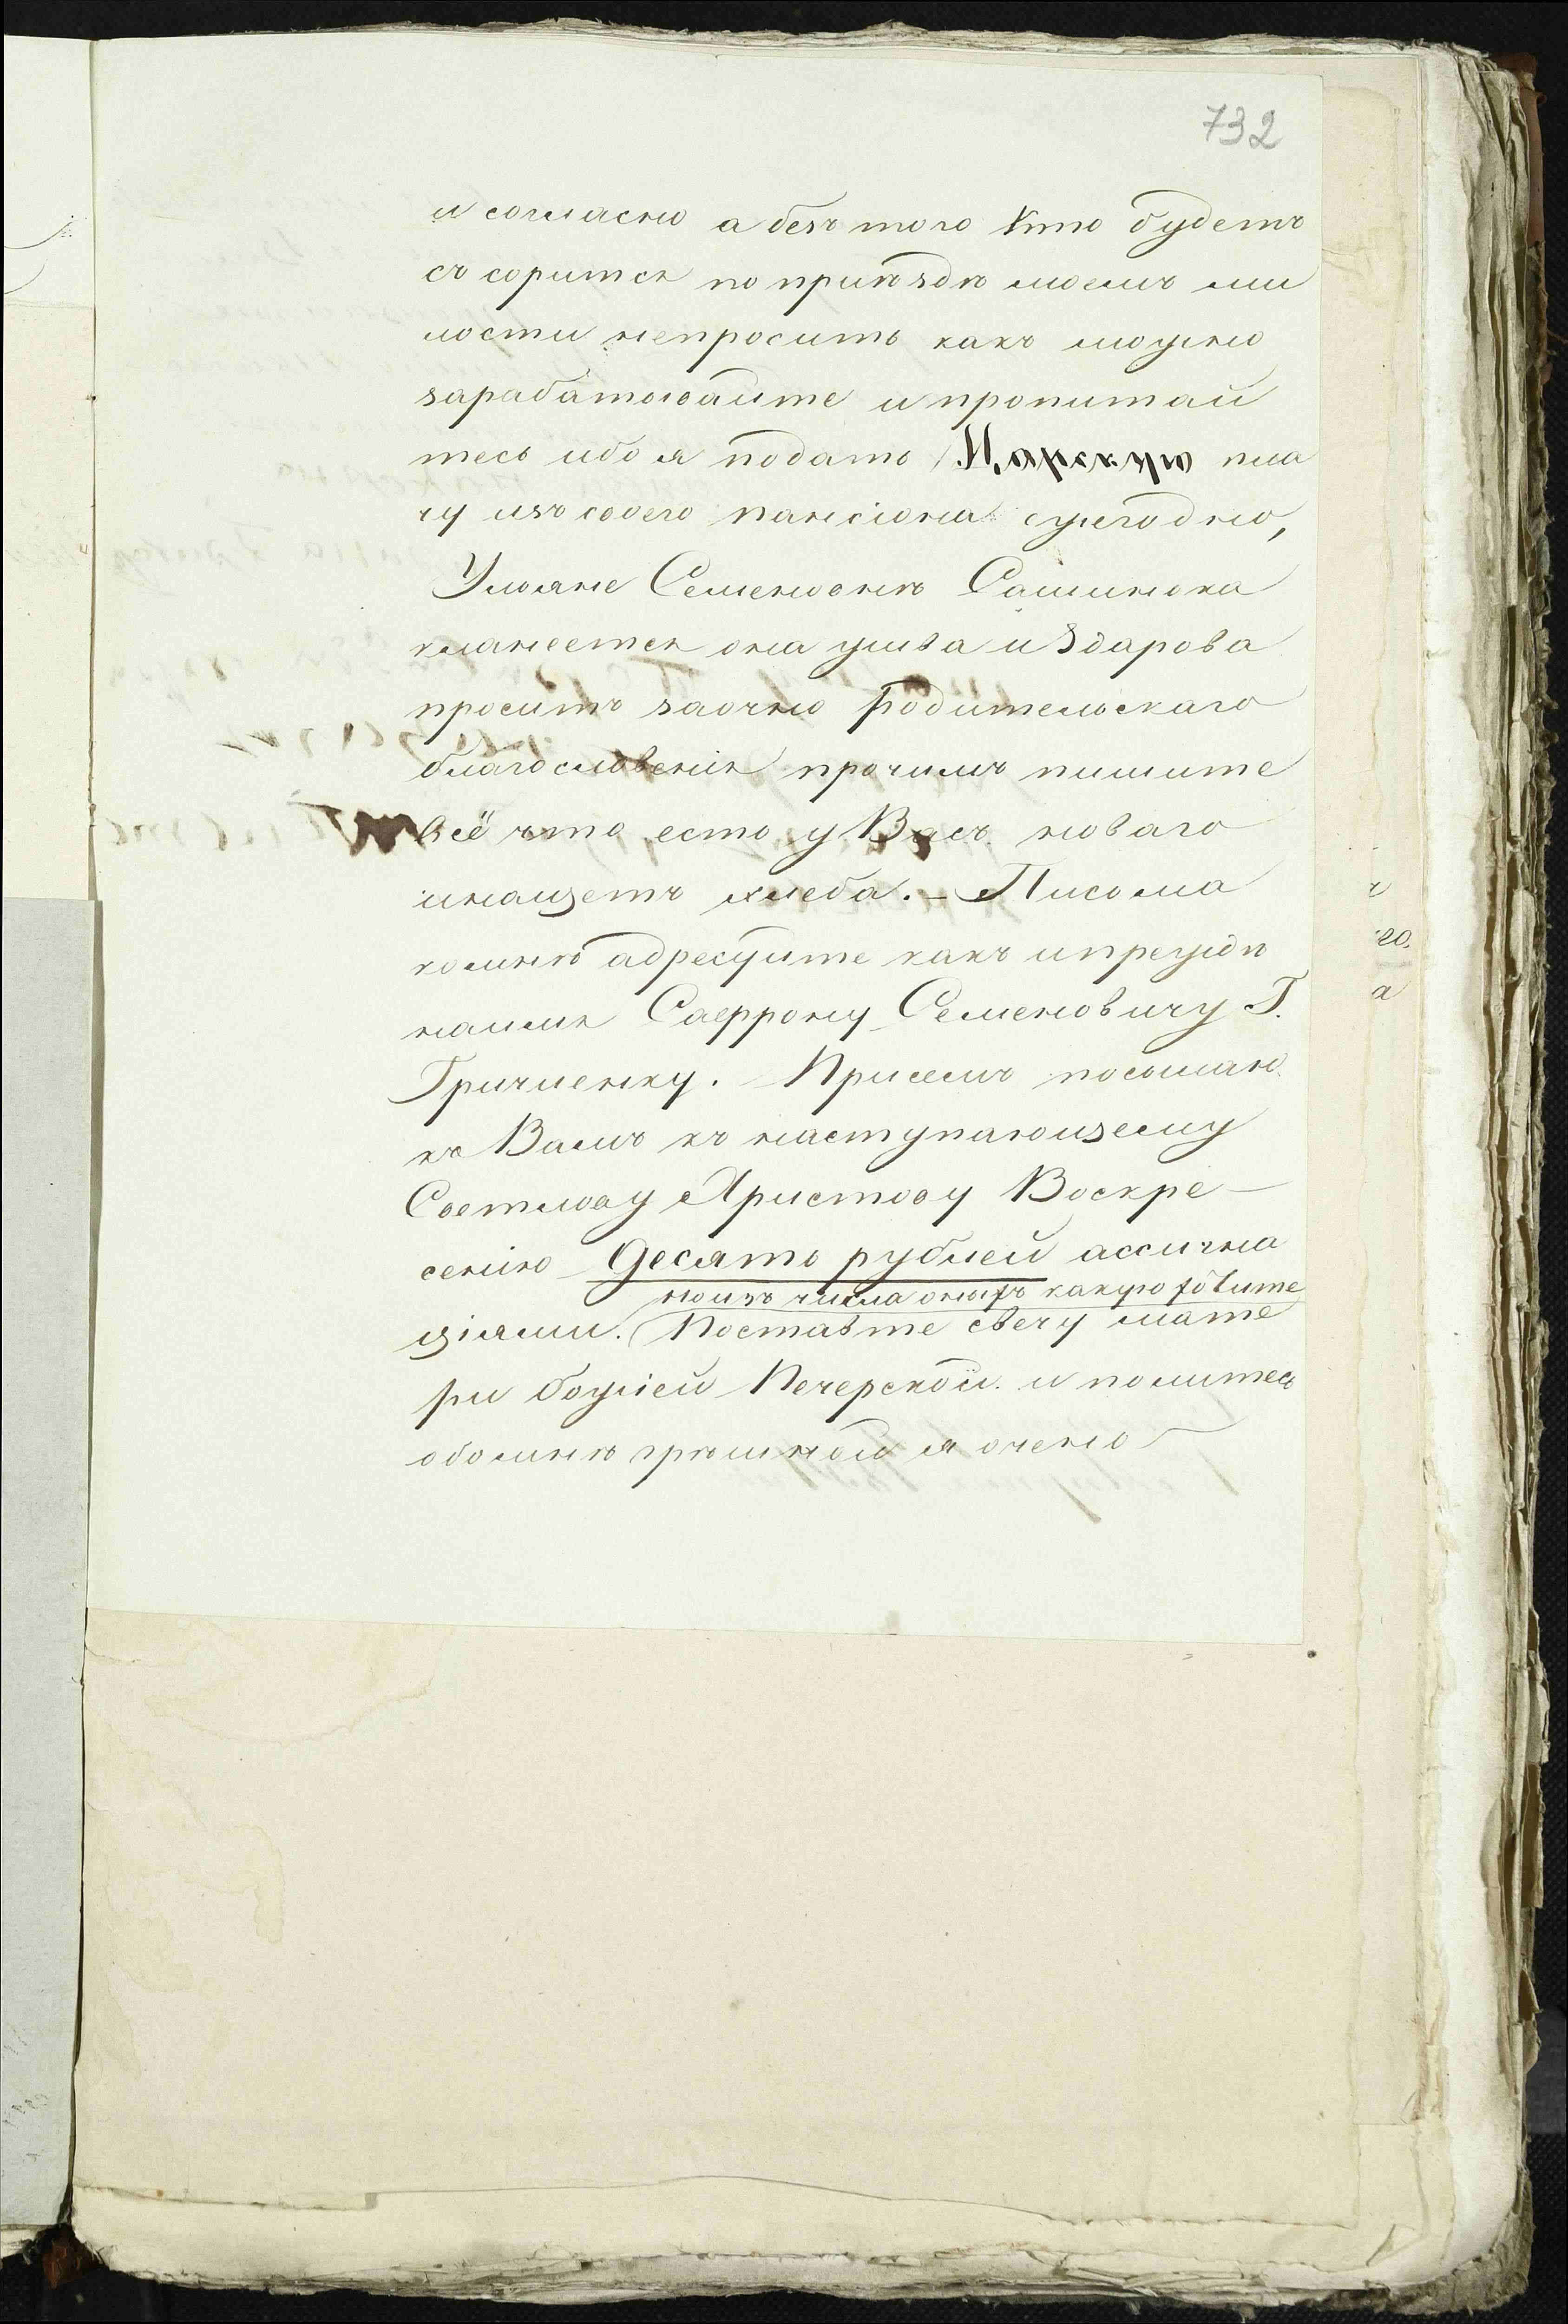 732
и согласно а безъ того Кто будетъ
съ сорится по приѣздѣ моемъ ми
лости непросить какъ можно
зарабатовайте и пропитай
тесь ибо я подать пла
чу изъ совего пансіона ежегодно,
Ульяне Семеновнѣ Сашинька
кланеется она жива и Здарова
просить заочно родительскаго
благословенія прочимъ пишите
всё что есть у Васъ новаго
инащетъ хлеба. – Письма
комнѣ адресуйте какъ ипрежде
наимя Саффону Семеновичу Г.
Гричненку. Присемъ посылаю
къ Вамъ къ наступающему
Светлову Христову Воскре–
сенію Десять рублей ассигна
ноизъ числа оныхъ какую хотите
ціями. Поставте свечу мате
ри божіей Печерской. и помитесь
обомнѣ грѣшной я очень
ч
го.
а